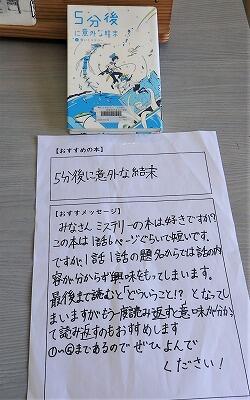 5分後
に意外な結末
【おすすめの本】
5分後に意外な結末
【おすすめメッセージ】
みなさんミステリーの本は好きですか?
この本は1話6ページぐらいで短いです。
ですが、1話1話の題名からでは話の内
容が分からず興味をもってしまいます。
最後まで読むと「どういうこと!?」となってし
まいますがもう一度読み返すと意味が分かっ
て読み返すのもおすすめします
①~⑤まであるのでぜひよんで
ください!